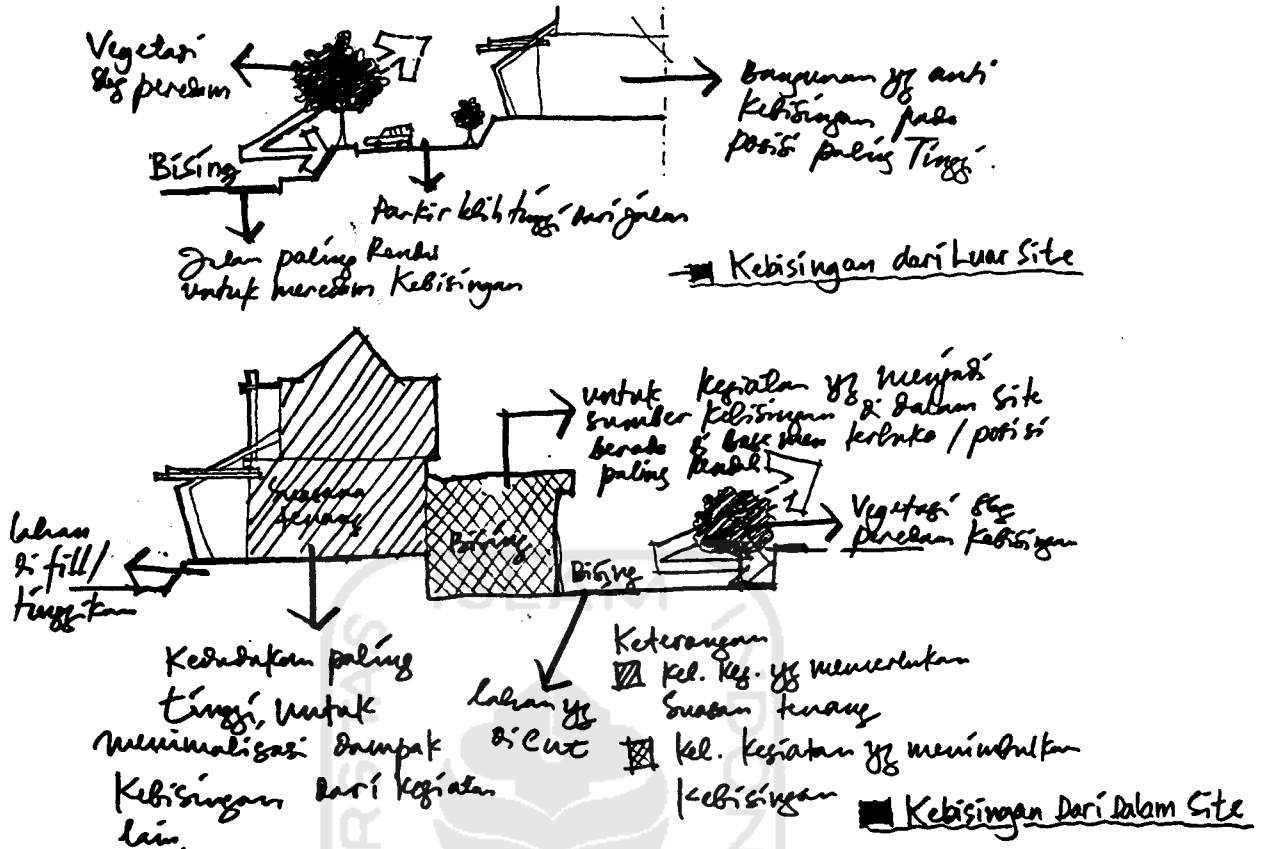 Vegetasi
sbg peredam
Bising
Bangunan yg anti
Kebisingan pada
posisi paling Tinggi.
Parkir lebih tinggi dari jalan
Jalan paling Rendah
untuk meredam Kebisingan
Kebisingan dari Luar Site
untuk kegiatan yg menjadi
sumber kebisingan di dalam Site
berada di basemen terbuka / posisi
paling Rendah
Suasana
tenang
Bising
Bising
Vegetasi sbg
peredam Kebisingan
lahan
di fill/
tinggikan
Kedudukan paling
tinggi, untuk
menimalisasi dampak
Kebisingan dari kegiatan
lain.
lahan yg
di Cut
Keterangan
Kel. Keg. yg memerlukan
Suasan tenang
Kel. Kegiatan yg menimbulkan
Kebisingan
Kebisingan Dari Dalam Site
ISLAM